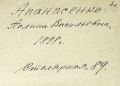 Апанасенко
Полина Васильевна,
1898.
Столярная, 89.